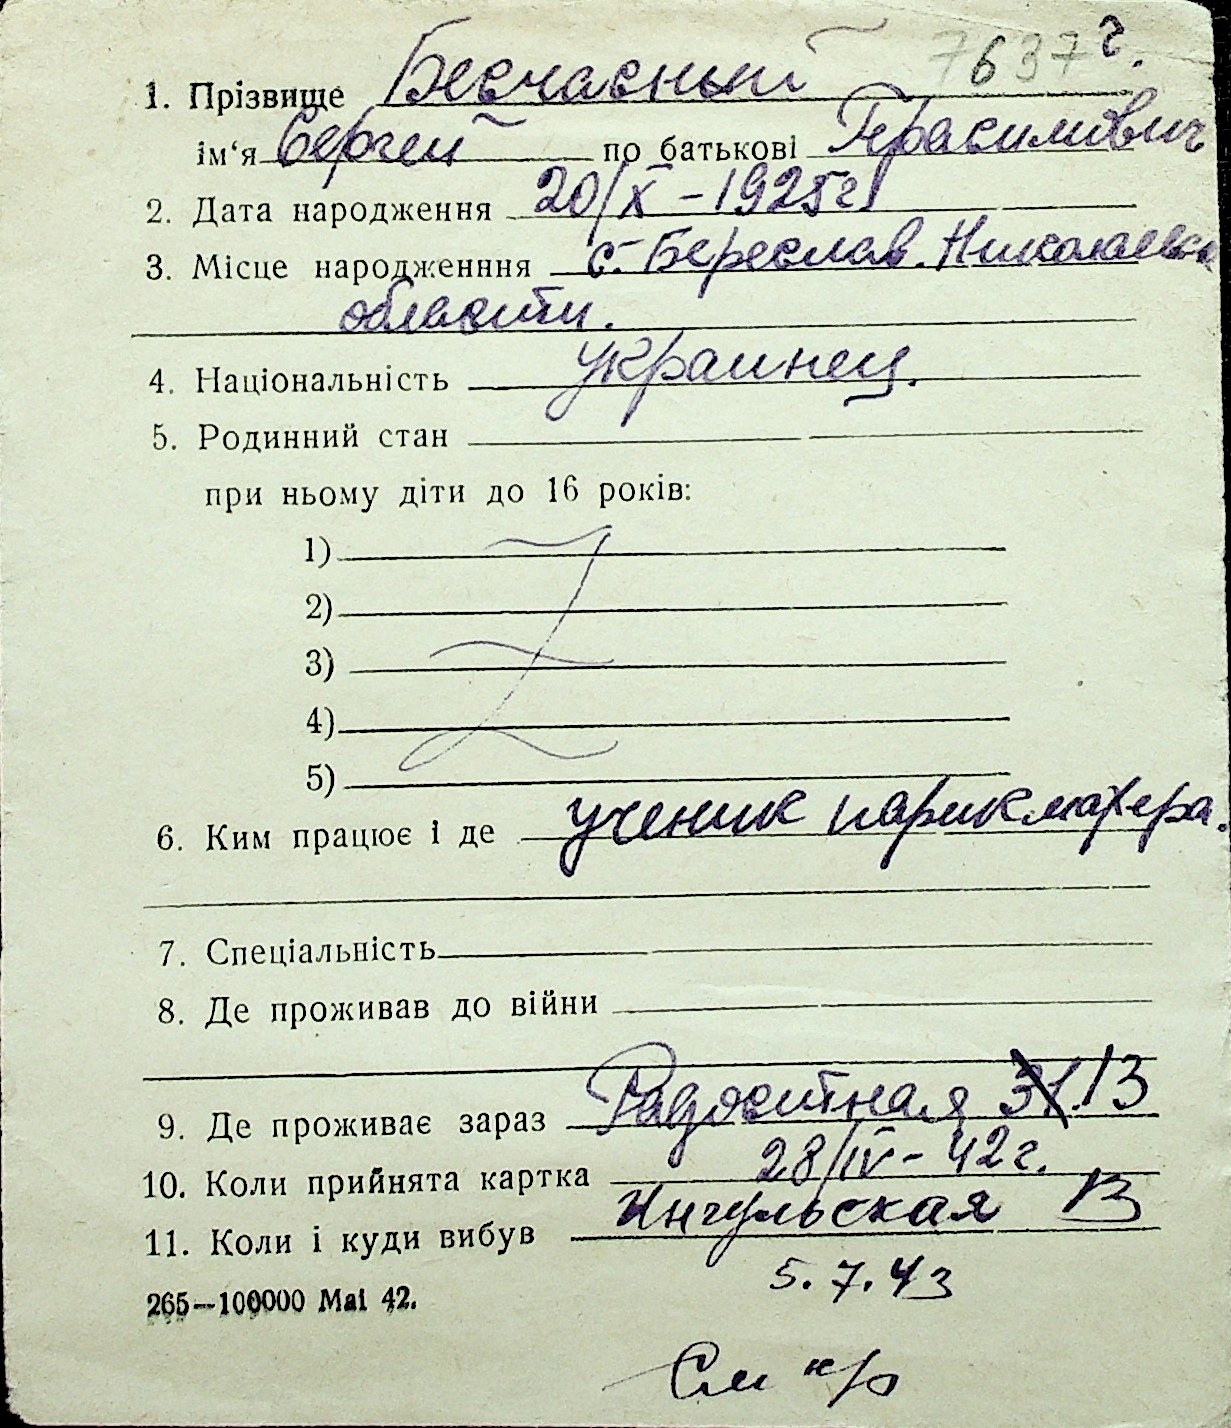 7637 г.
1. Прізвище Бесчасный
ім‘я Сергей по батькові Герасимович
2. Дата народження 20/X – 1925г
3. Місце народженння с. Береслав. Николаевск
области.
4. Національність украинец.
5. Родинний стан
при ньому діти до 16 років:
1)
2)
3)
4)
5)
6. Ким працює і де ученик парикмахера.
7. Спеціальність
8. Де проживав до війни
9. Де проживає зараз Радостная 31. 13
10. Коли прийнята картка 28/IV – 42г.
11. Коли і куди вибув Ингульская 13
5.7.43
265–100000 Mai 42.
См